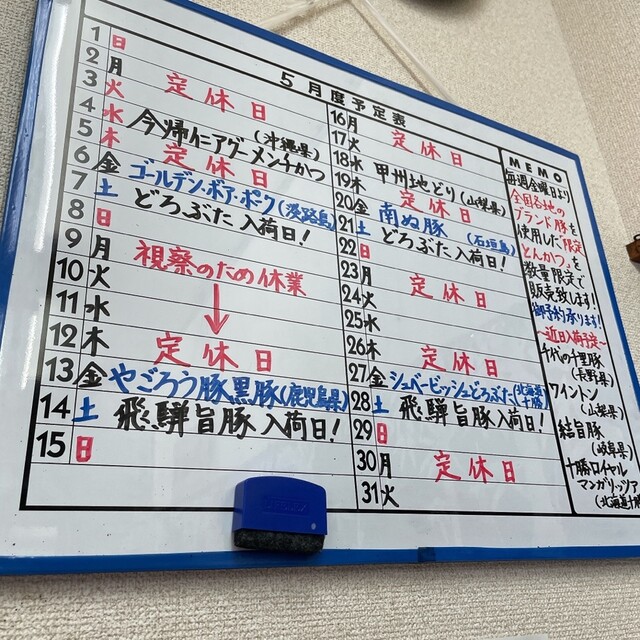 5月度予定表
1 日
2 月
3 火 定休日
4 水 今帰仁アグーメンチかつ (沖縄県)
5 木 定休日
6 金 ゴールデン・ボア・ポーク (淡路島)
7 土 どろぶた入荷日!
8 日
9 月 視察のため休業
10 火
11 水
12 木 定休日
13 金 やごろう豚黒豚(鹿児島県)
14 土 飛騨旨豚入荷日!
15 日
16 月
17 火 定休日
18 水 甲州地どり(山梨県)
19 木 定休日
20 金 南ぬ豚 (石垣島)
21 土 どろぶた入荷日!
22 日
23 月 定休日
24 火
25 水
26 木 定休日
27 金 シュベービッシュどろぶた(北海道十勝)
28 土 飛騨旨豚入荷日!
29 日
30 月 定休日
31 火
MEMO
毎週金曜日より
全国各地の
ブランド豚を
使用した「限定
とんかつ」を
数量限定で
販売致します!
御予約承ります!
〜近日入荷予定〜
千代の千里豚
(長野県)
ワイントン
(山梨県)
結旨豚
(岐阜県)
十勝ロイヤル
マンガリッツァ
(北海道十勝